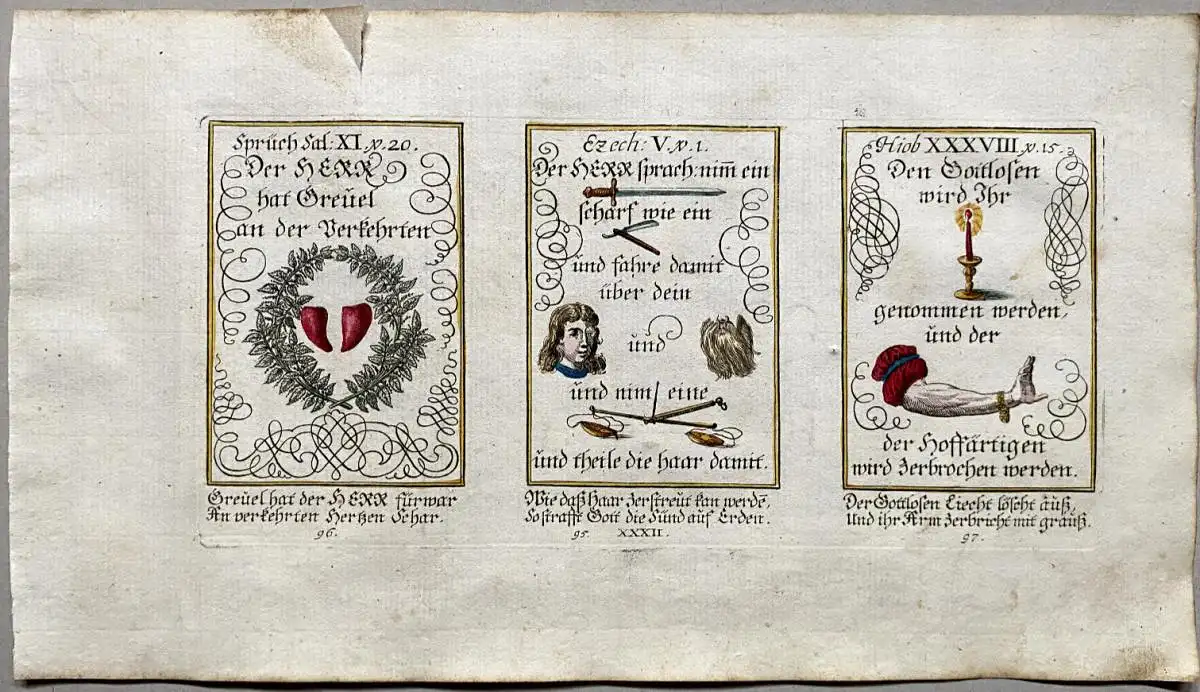 Sprüch Sal: XI. v. 20.
Der HERR
hat Greüel
an der Verkehrten
Greüel hat der HERR fürwar
An verkehrten Hertzen Schar.
96.
Ezech: V. v. 1.
Der HERR sprach: nim̄ ein
scharf wie ein
und fahre damit
über dein
und
und nim eine
und theile die haar damit.
Wie daß Haar zerstreut kan werdē,
So strafft Gott die Sünd auf Erden.
95. XXXII.
Hiob XXXVIII. v. 15.
Den Gottlosen
wird Ihr
genommen werden,
und der
der Hoffärtigen
wird zerbrochen werden.
Der Gottlosen Liecht löscht auß,
Und ihr Arm zerbricht mit grauß.
97.